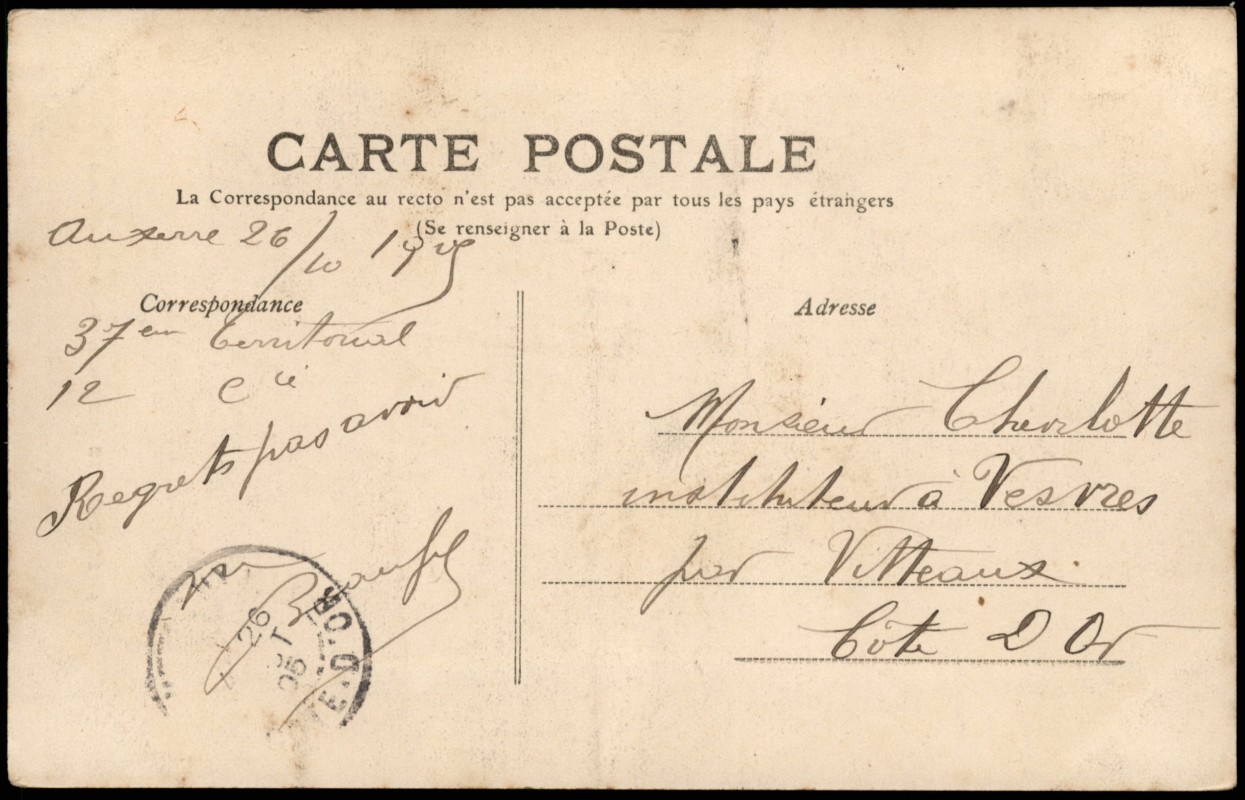 CARTE POSTALE
La Correspondance au recto n'est pas acceptée par tous les pays étrangers
(Se renseigner à la Poste)
Auxerre 26/10 1905
Correspondance
37em territorial
12 Cie
Regrets pas avoir
Adresse
Monsieur Cherlotte
instituteur à Vesvres
par Vitteaux
Côte D Or
26
05
TE-D'OR